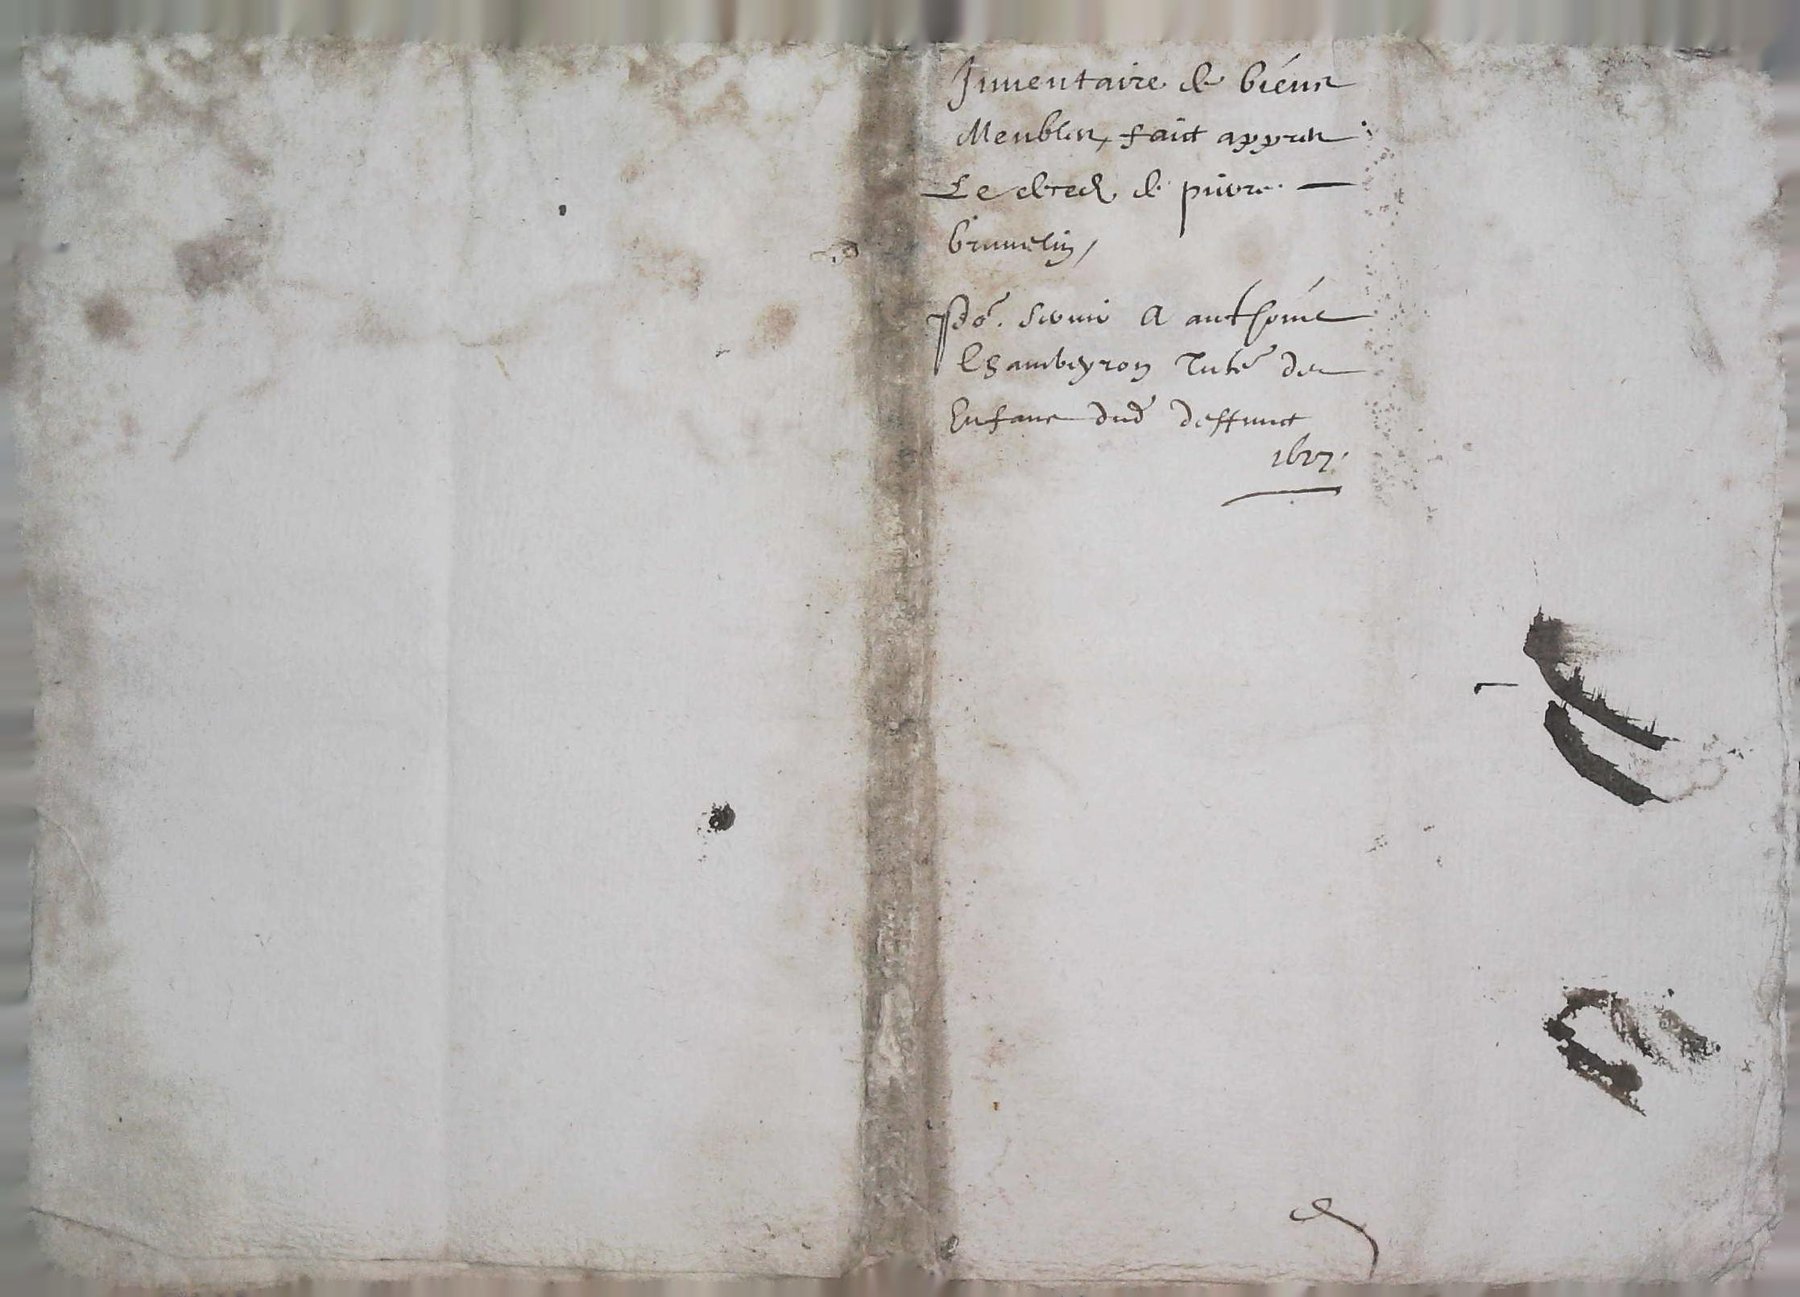 Inventaire de biens
Meubles, faict appres
Le deced de pierre
brunelin,
po.r servir A anthoine
Chambeyron Tute.r des
Enfans dud. deffunct
1627.